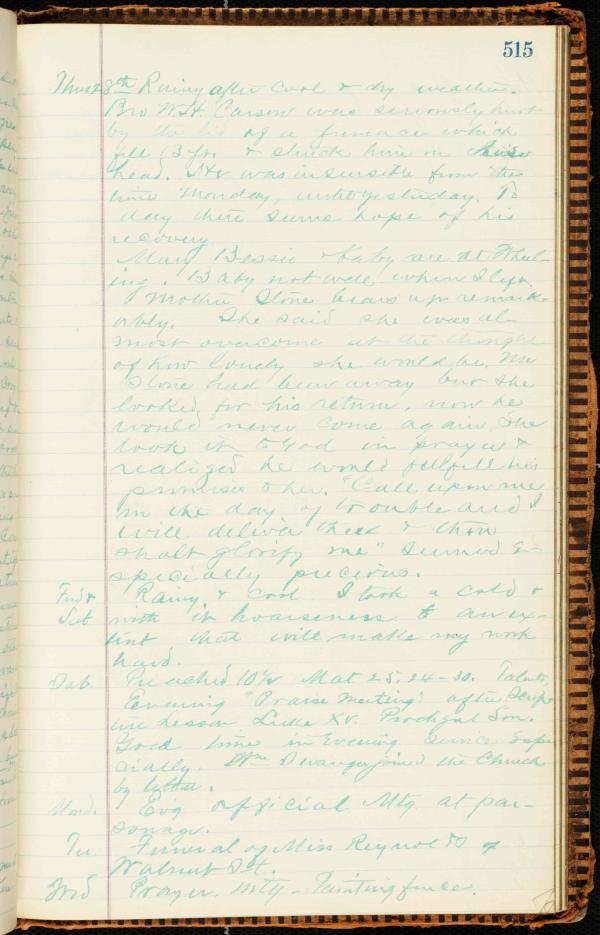 515
Thurs 28th Rainy after cool & dry weather.
Bro W. H. Carson was seriously hurt
by the lid of a furnace which
fell 13 ft. & struck him on
head. He was insensible from the
time Monday, until yesterday. To
day there seems hope of his
recovery.
Mary Bessie & baby are at Wheel-
ing. Baby not well when I left.
Mother Stone bears up remark-
ably. She said she was al-
most overcome at the thought
of how lonely she would be. Mr
Stone had been away but she
looked for his return, now he
would never come again, she
took it to God in prayer &
realized he would fulfill his
promises to her. "Call upon me
in the day of trouble and I
will deliver thee & thou
shalt glorify me" seemed e-
specially precious.
Frid & Rainy & cool I took a cold &
Sat with it hoarseness to an ex-
tent that will make my work
hard.
Sab. Preached 10½ Mat 25. 24-30. Talents
Evening "Praise Meeting" after Scrip
ture Lesson Luke XV. Prodigal Son.
Good time in Evening service Espe
cially. Wm joined the Church
by letter.
Mond. Ev'g official Mtg at par-
sonage.
Tu. Funeral of Miss Reynolds of
Walnut St.
Wed Prayer Mtg - Painting fence.